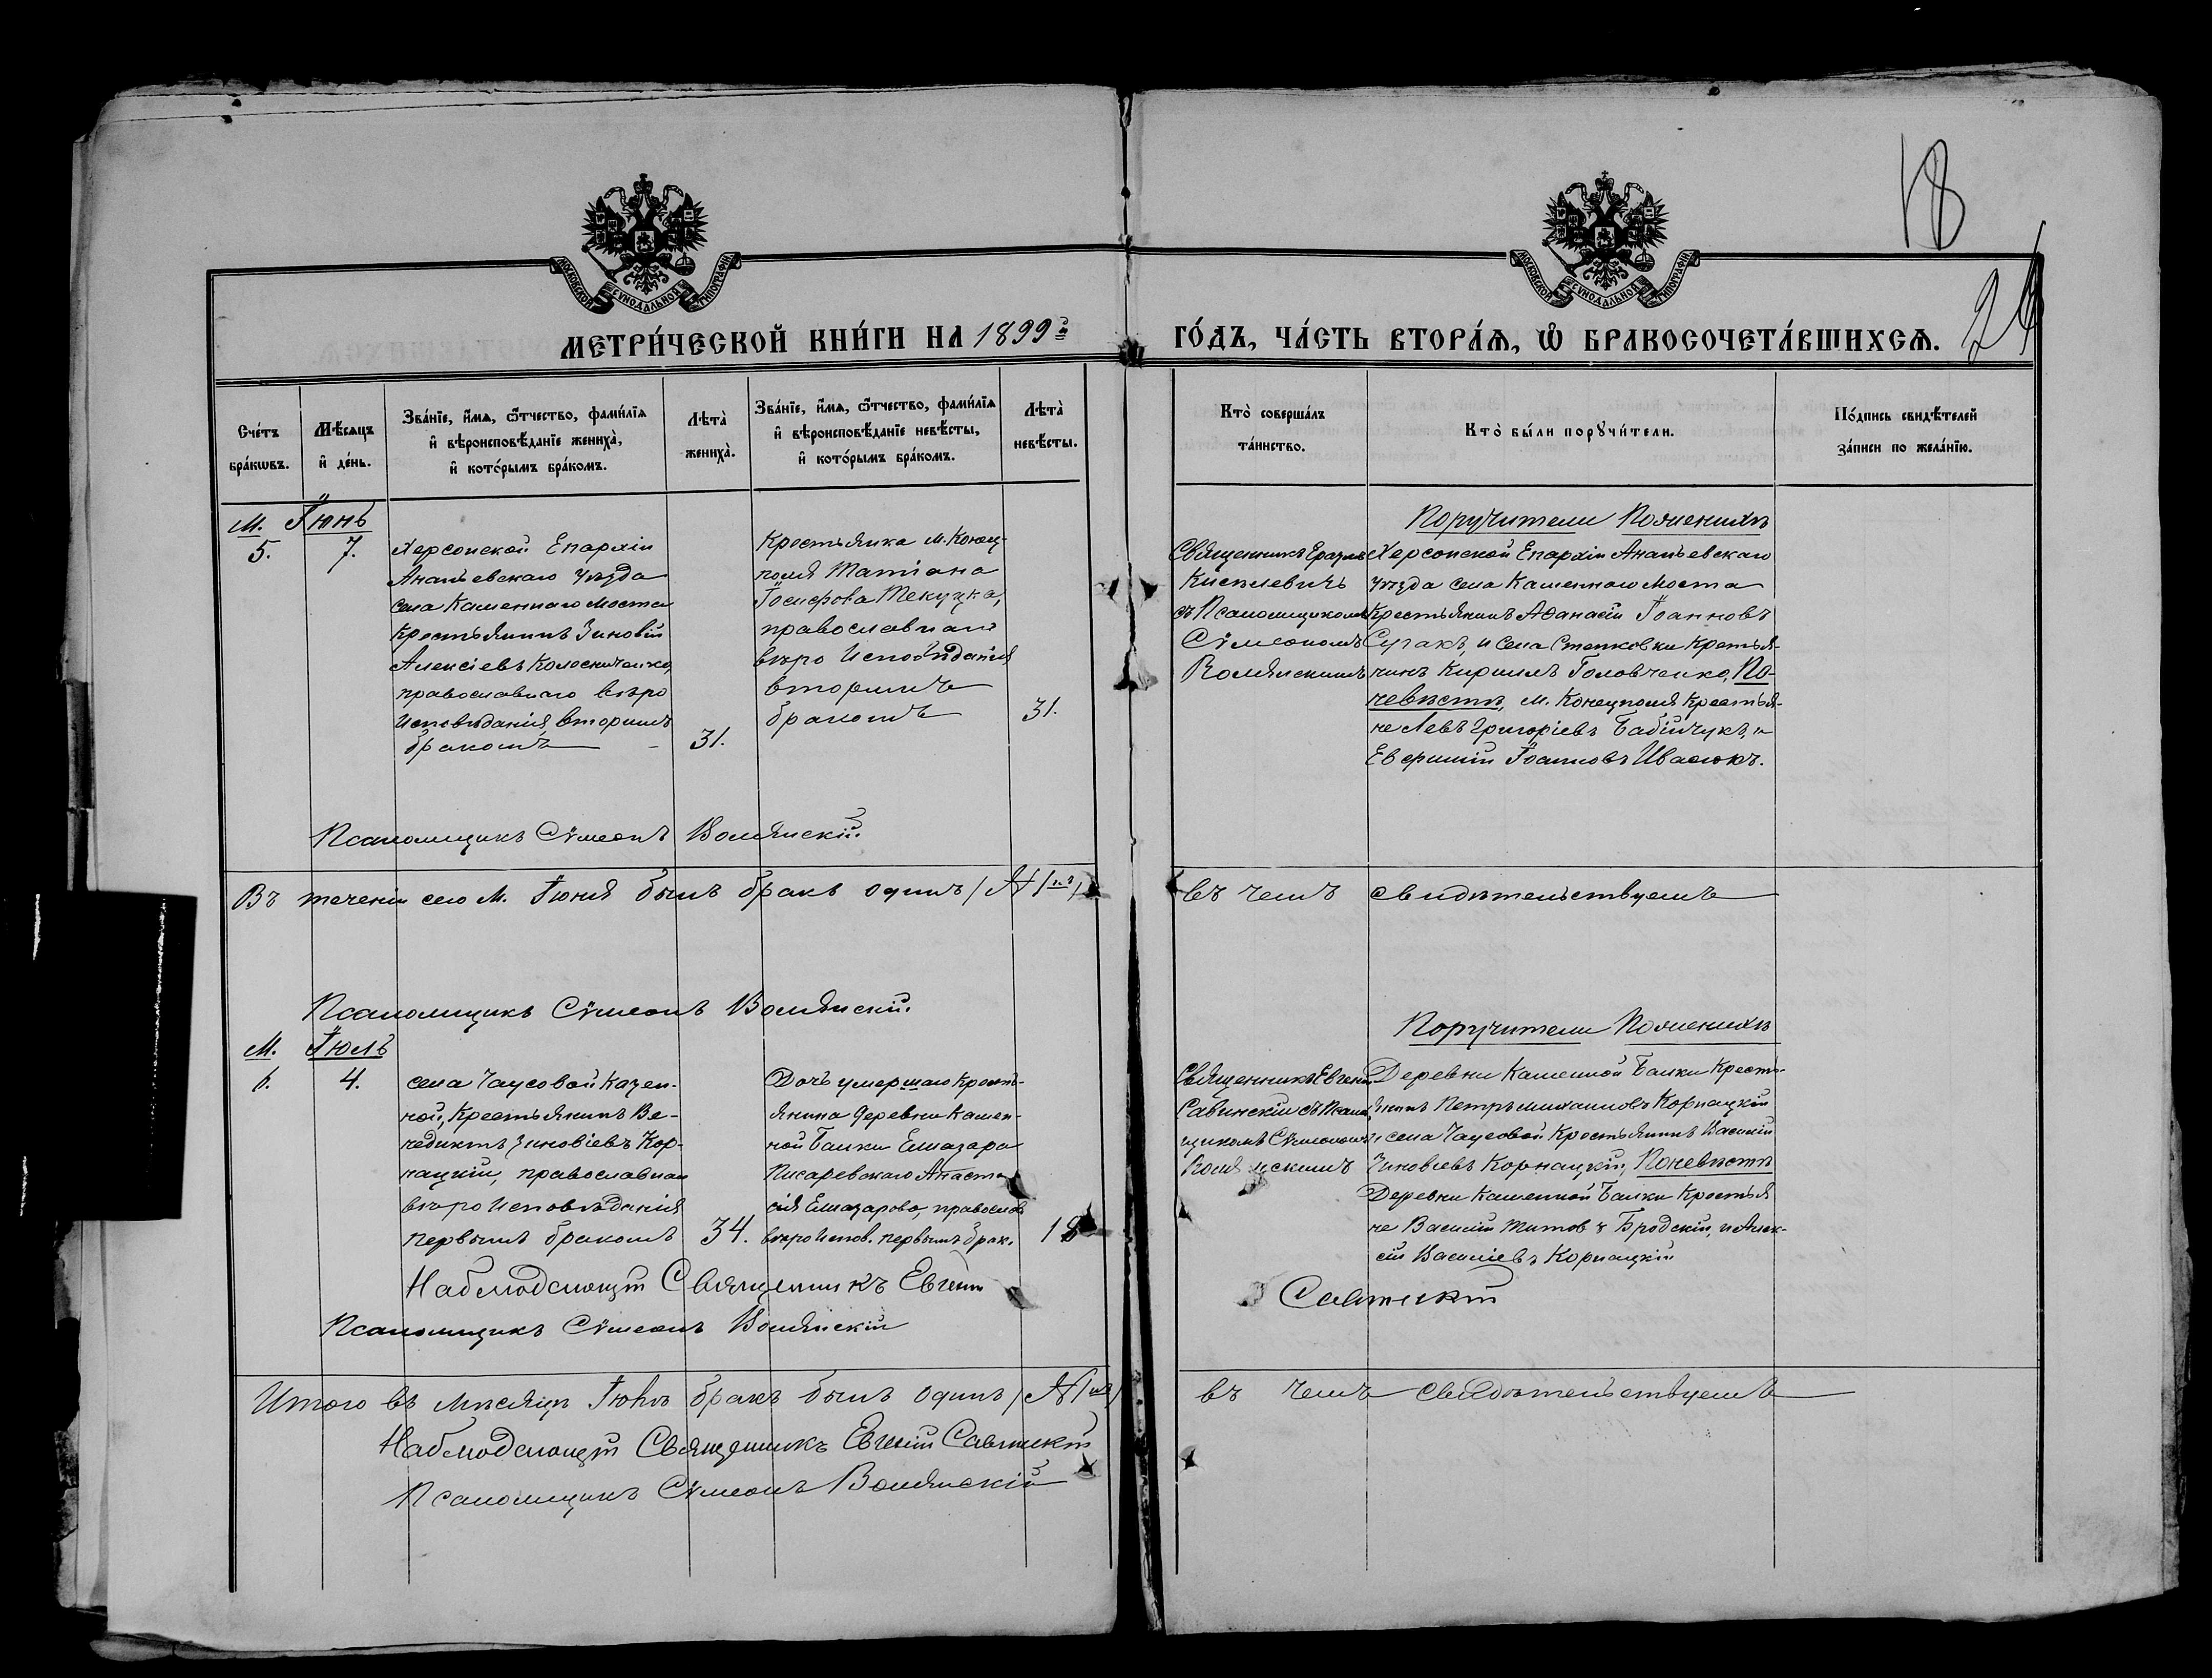 18
24
МОСКОВСКОЙ СѴНОДАЛЬНОЙ ТИПОГРАФІИ
МОСКОВСКОЙ СѴНОДАЛЬНОЙ ТИПОГРАФІИ
МЕТРИ́ЧЕСКОЙ КНИ́ГИ НА 1899й
ГО́ДЪ, ЧА́СТЬ ВТОРА́Ѧ, Ѡ҆ БРАКОСОЧЕТА́ВШИХСѦ.
Сче́тъ
бра́кѡвъ.
Мѣ́сѧцъ
и҆ де́нь.
Зва́нїе, и҆́мѧ, ѻ҆́тчество, фами́лїѧ
и҆ вѣроисповѣ́данїе жениха̀,
и҆ кото́рымъ бра́комъ.
Лѣта̀
жениха̀.
Зва́нїе, и҆́мѧ, ѻ҆́тчество, фами́лїѧ
и҆ вѣроисповѣ́данїе невѣ́сты,
и҆ кото́рымъ бра́комъ.
Лѣта̀
невѣ́сты.
Кто̀ соверша́лъ
та́инство.
Кто̀ бы́ли порꙋчи́тели.
По́дпись свидѣ́телей
за́писи по жела́нїю.
М. Іюнь
5.
7.
Херсонской Епархіи
Ананьевскаго уѣзда
села Каменнаго Моста
Крестьянинъ Зиновій
Алексіевъ Колосниченко,
православнаго вѣро
исповѣданія, вторымъ
бракомъ
31.
Крестьянка м. Конец-
поля Татіана
Іосифова Текуцка,
православнаго
вѣро исповѣданія
вторымъ
бракомъ
31.
Священникъ Еразмъ
Киселевичъ
съ Псаломщикомъ
Сѵмеономъ
Волянскимъ
Поручители По женихѣ
Херсонской Епархіи Ананьевскаго
уѣзда села Каменнаго Моста
Крестьянинъ Аѳанасій Іоанновъ
Сугакъ, и села Степковки Крестья-
нинъ Кириллъ Головченко, По
невѣстѣ, м. Конецполя Крестья-
не Левъ Григоріевъ Бабійчукъ, и
Евфимій Іоанновъ Ивасюкъ.
Псаломщикъ Сѵмеонъ Волянскій.
Въ теченіи сего м. Іюня былъ бракъ одинъ (№ 1й)
въ чемъ свидѣтельствуемъ
Псаломщикъ Сѵмеонъ Волянскій.
М. Іюль
6.
4.
села Чаусовой Казен-
ной, Крестьянинъ Ве-
недиктъ Зиновіевъ Кор-
нацкій, православнаго
вѣроисповѣданія
первымъ бракомъ
34.
Дочь умершаго Кресть-
янина деревни Камен-
ной Балки Елиазара
Писаревскаго Анаста
сія Елиазарова, православ
вѣроиспов. первымъ брак.
18
Священникъ Евгеній
Савинскій съ Псалом
щикомъ Сѵмеономъ
Волянскимъ
Поручители По женихѣ
Деревни Каменной Балки Кресть-
янинъ Петръ Михаиловъ Корнацкій
и села Чаусовой Крестьянинъ Василій
Зиновіевъ Корнацкій, По невѣстѣ
Деревни Каменной Балки Крестья
не Василій Титовъ Бродскій, и Алек-
сій Василіевъ Корнацкій
Наблюдающій Священникъ Евгеній
Савинскій
Псаломщикъ Сѵмеонъ Волянскій
Итого въ мѣсяцѣ Іюлѣ бракъ былъ одинъ (№ 1й)
въ чемъ свидѣтельствуемъ
Наблюдающій Священникъ Евгеній Савинскій
Псаломщикъ Сѵмеонъ Волянскій